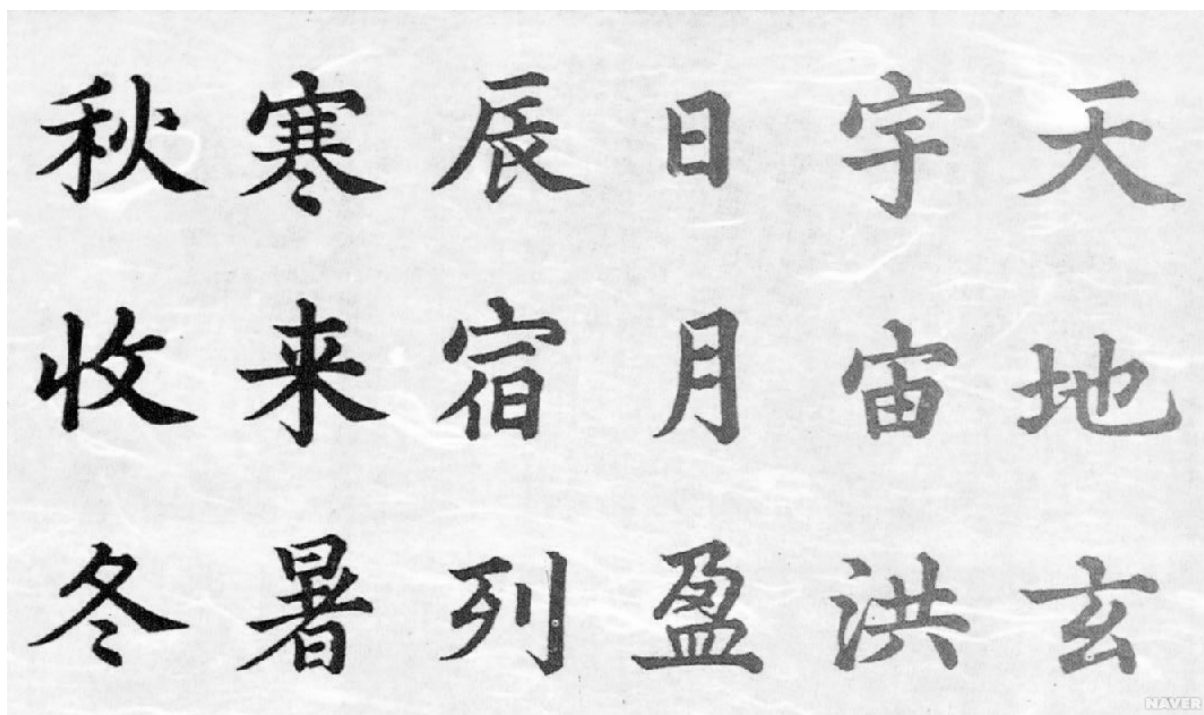 天地玄
宇宙洪
日月盈
辰宿列
寒来暑
秋收冬
NAVER